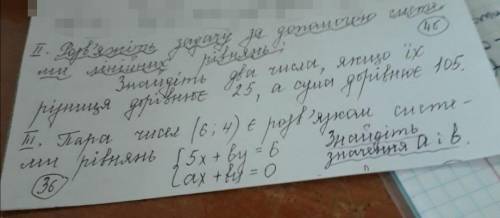 II. Розв'яжіть задачу за допомогою систе
ми лінійних рівнянь:
Знайдіть два числа, якщо їх
різниця дорівнює 25, а сума дорівнює 105.
III. Пара чисел (6; 4) є розв'язком систе-
ми рівнянь {5x + by = 6
{ax + by = 0
Знайдіть
значення a і b.
4б
3б